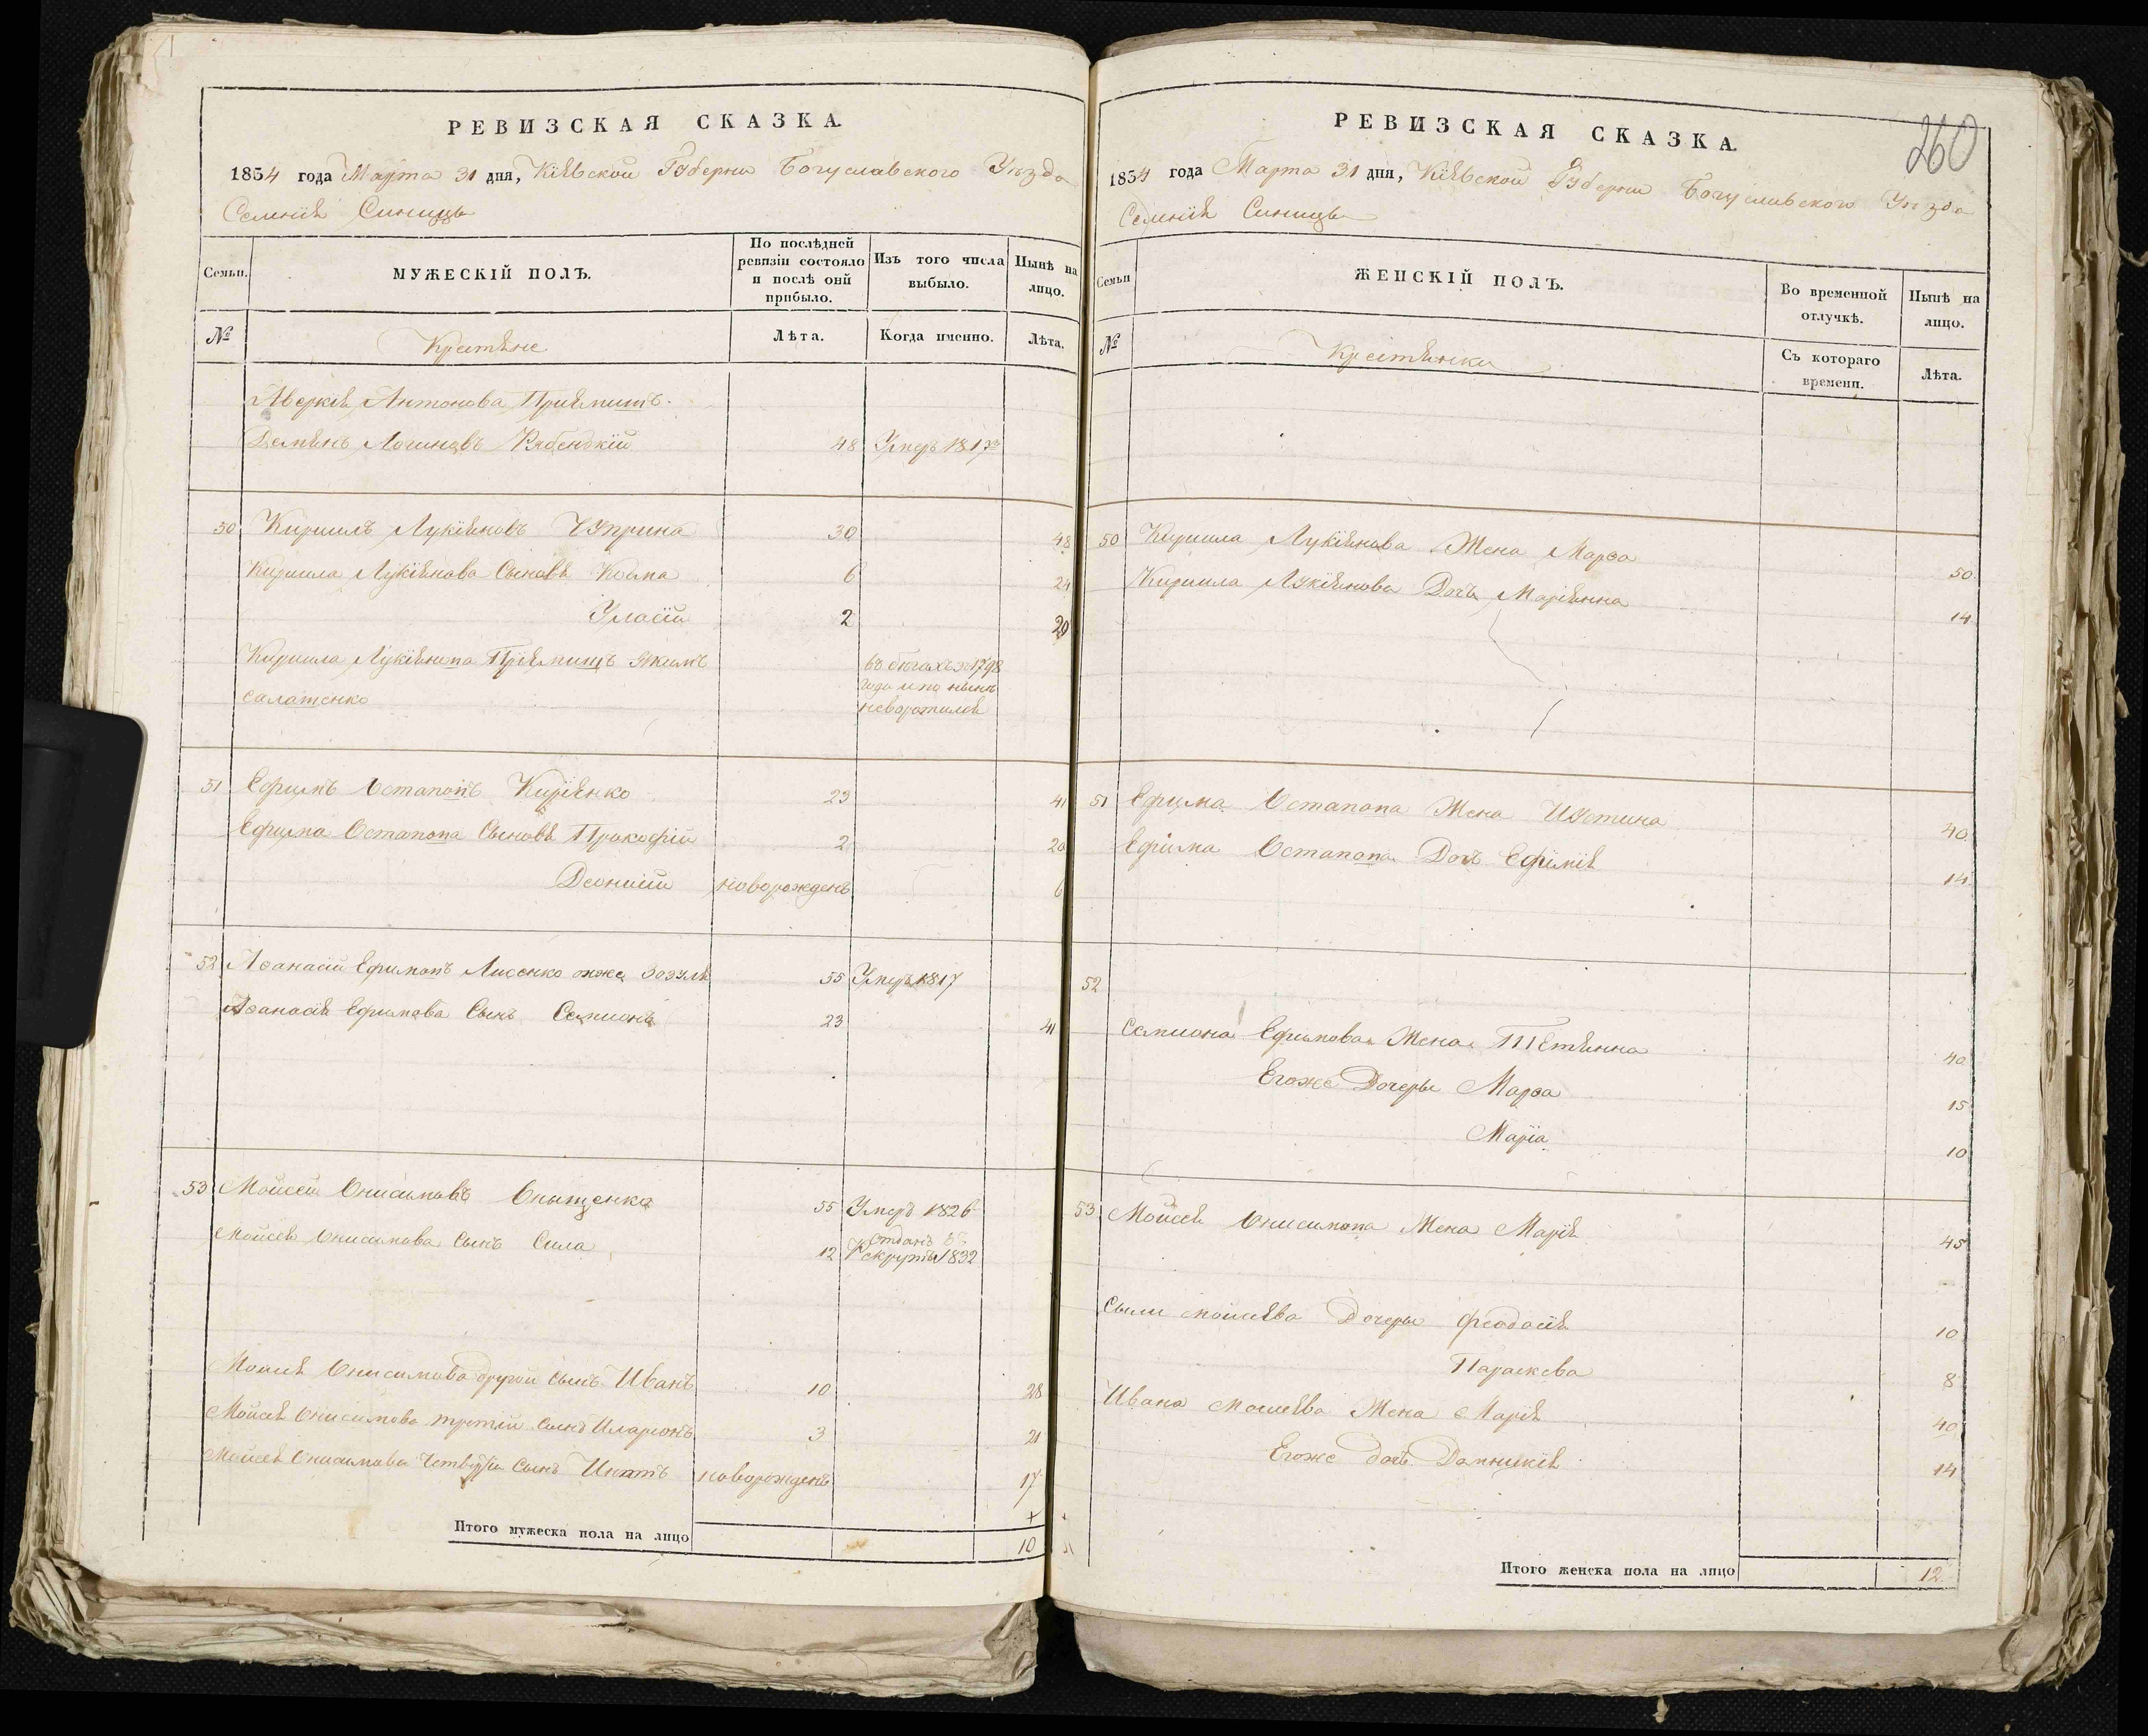 РЕВИЗСКАЯ СКАЗКА.
1834 года Марта 31 дня, Кіѣвской Губерни Богуславского Уѣзда
Селенія Синицы
Семьи.
МУЖЕСКІЙ ПОЛЪ.
По послѣдней ревизіи состояло и послѣ оній прибыло.
Изъ того числа выбыло.
Нынѣ на лицо.
№
Крестяне
Лѣта.
Когда именно.
Лѣта.
Аверкія Антонова Пріемишъ
Демянъ Логиновъ 48 Умеръ 1817
50 Кирилъ Лукіяновъ Чуприна 30 48
Кирила Лукіянова Сыновя Козма 6 24
Уласій 2 20
Кирила Лукіянова Пріемишъ Якимъ въ бѣгахъ з 1798
салатенко года и по нынѣ
неворотился
51 Ефимъ Остаповъ Кирѣенко 23 41
Ефима Остапова Сыновя Прокофій 2 20
Деонисій новорожденъ 6
52 Аѳанасій Ефимовъ Лисенко онже Зозуля 55 Умеръ 1817
Аѳанасія Ефимова Сынъ Семионъ 23 41
53 Мойсей Онисимовъ Онищенко 55 Умеръ 1826
Мойсея Онисимова Сынъ Сила 12 отданъ въ
Рекруты 1832
Мойсея Онисимова другой сынъ Иванъ 10 28
Мойсея Онисимова третій сынъ Иларионъ 3 21
Мойсея Онисимова Четвертій Сынъ новорожденъ 17
Итого мужеска пола на лицо 10
РЕВИЗСКАЯ СКАЗКА.
260
1834 года Марта 31 дня, Кіѣвской Губерни Богуславского Уѣзда
Селенія Синицы
Семьи
ЖЕНСКІЙ ПОЛЪ.
Во временной отлучкѣ.
Нынѣ на лицо.
№
Крестянки
Съ котораго времени.
Лѣта.
50 Кирила Лукіянова Жена Марѳа 50
Кирила Лукіянова Дочь Маріянна 14
51 Ефима Остапова Жена Иустина 40
Ефима Остапова Дочь Ефимія 14
52
Семиона Ефимова Жена Тетянна 40
Егоже Дочеры Марѳа 15
Марія 10
53 Мойсея Онисимова Жена Марія 45
Сылы мойсеева Дочеры Феодосія 10
Параскева 8
Ивана Мосиева Жена Марія 40
Егоже дочь Домникія 14
Итого женска пола на лицо 12